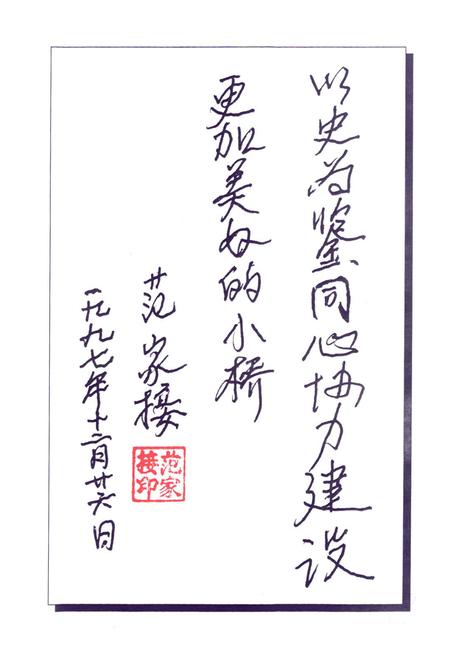 以史为鉴同心协力建设
更加美好的小桥
范家接
范家
接印
一九九七年十二月廿六日